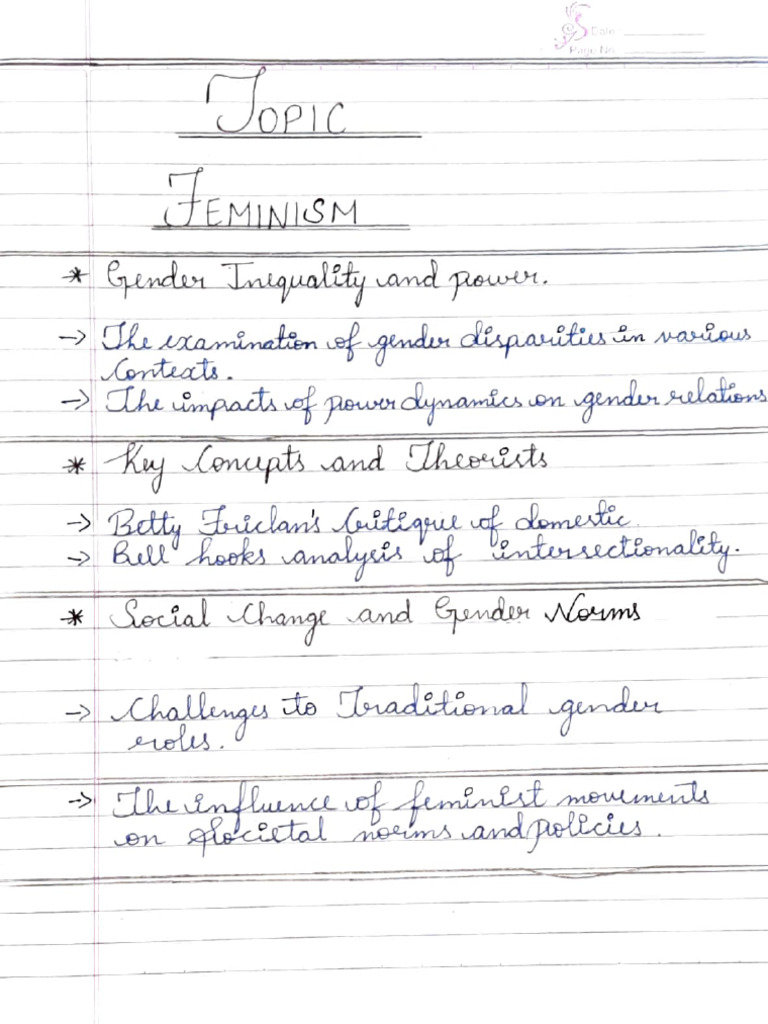 Date
Page No.
TOPIC
FEMINISM
* Gender Inequality and power.
→ The examination of gender disparities in various
Contexts.
→ The impacts of power dynamics on gender relations
* Key Concepts and Theorists
→ Betty Friclan's Critique of domestic.
→ Bell hooks analysis of intersectionality.
* Social Change and Gender Norms
→ Challenges to Traditional gender
roles.
→ The influence of feminist movements
on Societal norms and policies.